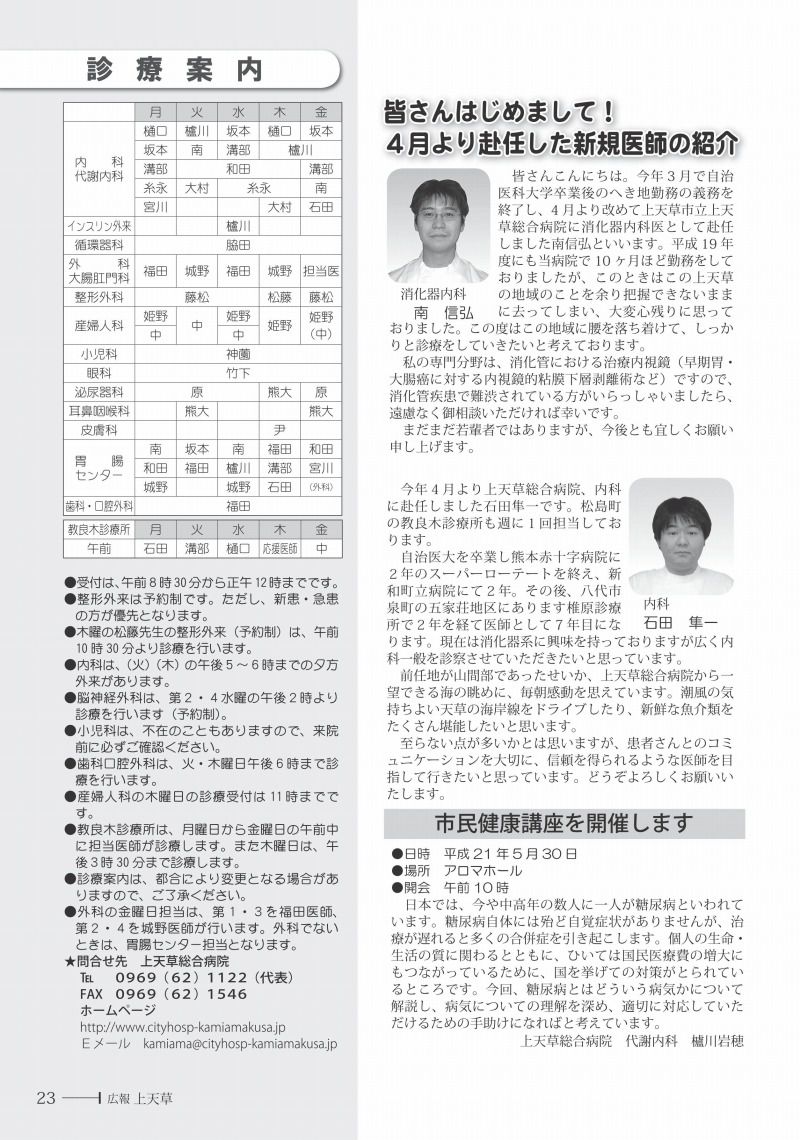 診療案内
月 火 水 木 金
内科 代謝内科
樋口 櫨川 坂本 樋口 坂本
坂本 南 溝部 櫨川
溝部 和田 溝部
糸永 大村 糸永 南
宮川 大村 石田
インスリン外来 櫨川
循環器科 脇田
外科 大腸肛門科 福田 城野 福田 城野 担当医
整形外科 藤松 松藤 藤松
産婦人科 姫野 中 姫野 姫野 姫野
中 中 (中)
小児科 神薗
眼科 竹下
泌尿器科 原 熊大 原
耳鼻咽喉科 熊大 熊大
皮膚科 尹
胃腸センター
南 坂本 南 福田 和田
和田 福田 櫨川 溝部 宮川
城野 城野 石田 (外科)
歯科・口腔外科 福田
教良木診療所 月 火 水 木 金
午前 石田 溝部 樋口 応援医師 中
●受付は、午前8時30分から正午12時までです。
●整形外来は予約制です。ただし、新患・急患
の方が優先となります。
●木曜の松藤先生の整形外来(予約制)は、午前
10時30分より診療を行います。
●内科は、(火)(木)の午後5~6時までの夕方
外来があります。
●脳神経外科は、第2・4水曜の午後2時より
診療を行います(予約制)。
●小児科は、不在のこともありますので、来院
前に必ずご確認ください。
●歯科口腔外科は、火・木曜日午後6時まで診
療を行います。
●産婦人科の木曜日の診療受付は11時までで
す。
●教良木診療所は、月曜日から金曜日の午前中
に担当医師が診療します。また木曜日は、午
後3時30分まで診療します。
●診療案内は、都合により変更となる場合があ
りますので、ご了承ください。
●外科の金曜日担当は、第1・3を福田医師、
第2・4を城野医師が行います。外科でない
ときは、胃腸センター担当となります。
★問合せ先 上天草総合病院
℡ 0969(62)1122(代表)
FAX 0969(62)1546
ホームページ
http://www.cityhosp-kamiamakusa.jp
Eメール kamiama@cityhosp-kamiamakusa.jp
23 広報 上天草
皆さんはじめまして!
4月より赴任した新規医師の紹介
皆さんこんにちは。今年3月で自治
医科大学卒業後のへき地勤務の義務を
終了し、4月より改めて上天草市立上天
草総合病院に消化器内科医として赴任
しました南信弘といいます。平成19年
度にも当病院で10ヶ月ほど勤務をして
おりましたが、このときはこの上天草
の地域のことを余り把握できないまま
に去ってしまい、大変心残りに思って
おりました。この度はこの地域に腰を落ち着けて、しっか
りと診療をしていきたいと考えております。
私の専門分野は、消化管における治療内視鏡(早期胃・
大腸癌に対する内視鏡的粘膜下層剥離術など)ですので、
消化管疾患で難渋されている方がいらっしゃいましたら、
遠慮なく御相談いただければ幸いです。
まだまだ若輩者ではありますが、今後とも宜しくお願い
申し上げます。
消化器内科
南 信弘
今年4月より上天草総合病院、内科
に赴任しました石田隼一です。松島町
の教良木診療所も週に1回担当してお
ります。
自治医大を卒業し熊本赤十字病院に
2年のスーパーローテートを終え、新
和町立病院にて2年。その後、八代市
泉町の五家荘地区にあります椎原診療
所で2年を経て医師として7年目にな
ります。現在は消化器系に興味を持っておりますが広く内
科一般を診察させていただきたいと思っています。
前任地が山間部であったせいか、上天草総合病院から一
望できる海の眺めに、毎朝感動を思えています。潮風の気
持ちよい天草の海岸線をドライブしたり、新鮮な魚介類を
たくさん堪能したいと思います。
至らない点が多いかとは思いますが、患者さんとのコミ
ュニケーションを大切に、信頼を得られるような医師を目
指して行きたいと思っています。どうぞよろしくお願いい
たします。
内科
石田 隼一
市民健康講座を開催します
●日時 平成21年5月30日
●場所 アロマホール
●開会 午前10時
日本では、今や中高年の数人に一人が糖尿病といわれて
います。糖尿病自体には殆ど自覚症状がありませんが、治
療が遅れると多くの合併症を引き起こします。個人の生命・
生活の質に関わるとともに、ひいては国民医療費の増大に
もつながっているために、国を挙げての対策がとられてい
るところです。今回、糖尿病とはどういう病気かについて
解説し、病気についての理解を深め、適切に対応していた
だけるための手助けになればと考えています。
上天草総合病院 代謝内科 櫨川岩穂